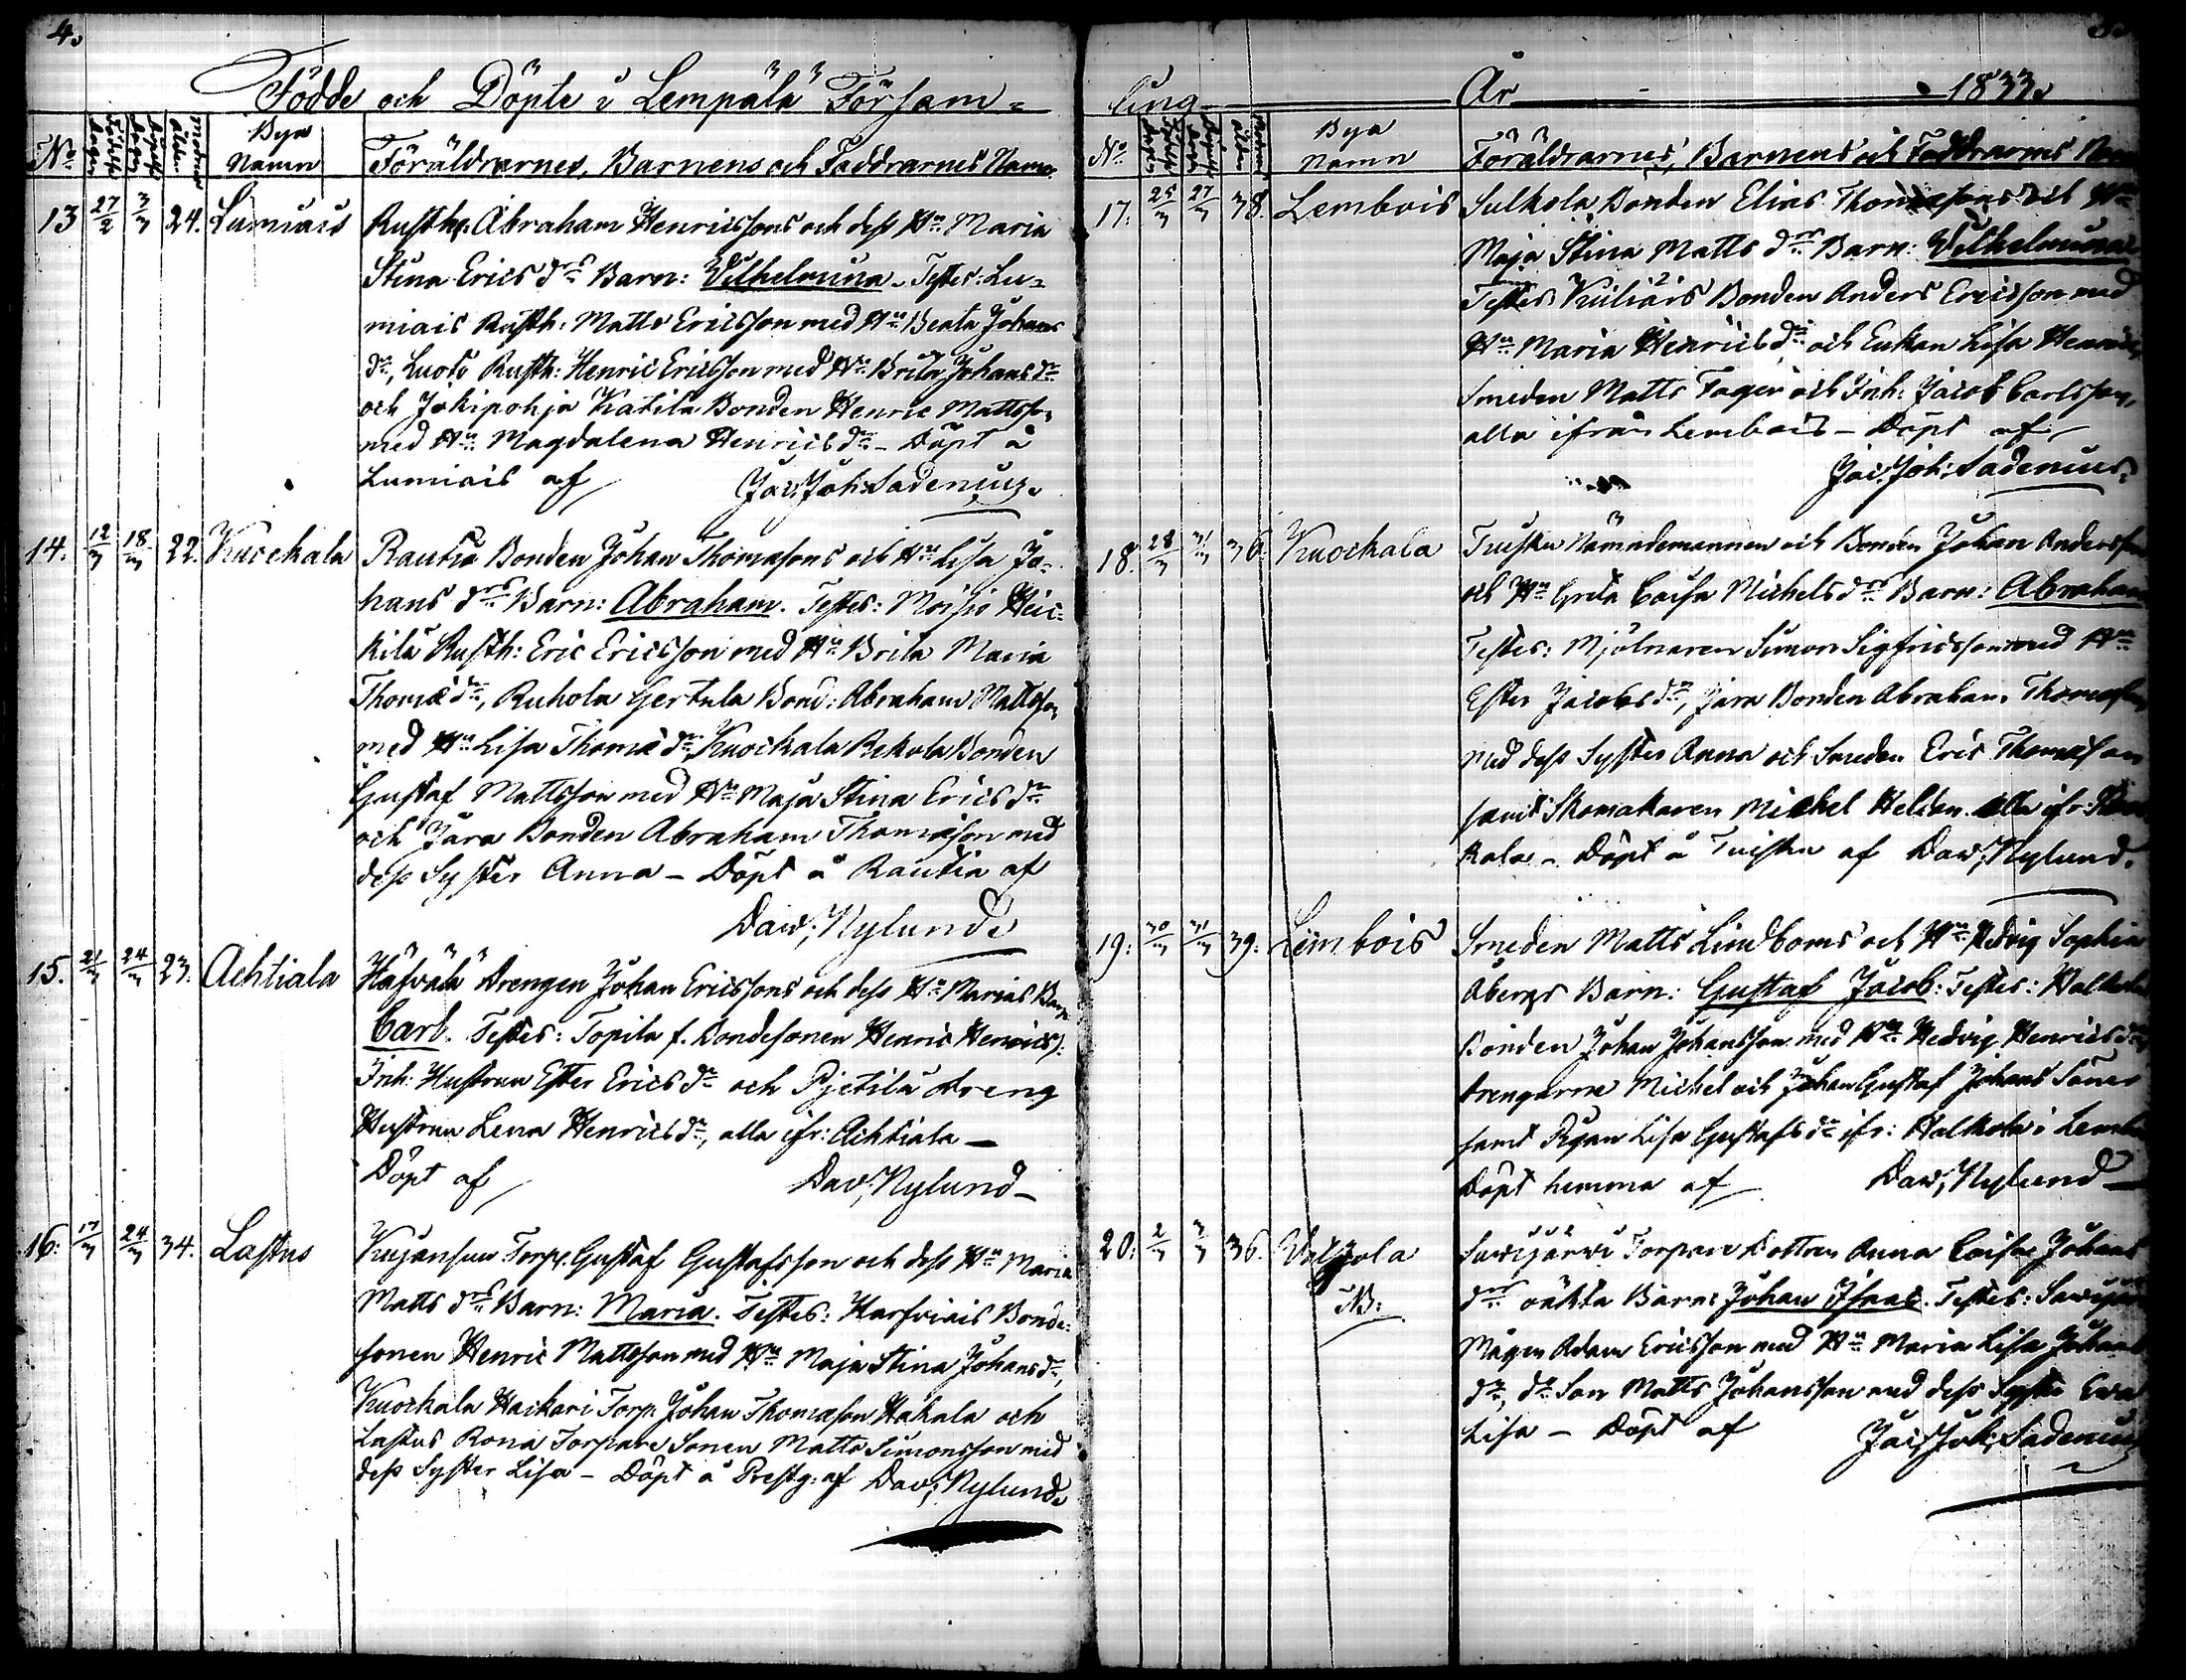 4.
Födde och Döpte i Lempälä Försam=
No
Födelse dagen
Döpelse dagen
Modrens ålder
Bya Namn
Föräldrarnes, Barnens och Faddrarnes Namn.
13 27/2 3/3 24. Lumiais
Rusth: Abraham Henricssons och dess Hu Maria
Stina Erics drs Barn: Wilhelmina. Testes: Lu=
miais Rusth: Matts Ericsson med Hu Beata Johans
dr, Ruth: Henric Ericsson med Hu Brita Johans dr
och Jokipohja Katila Bonden Henric Mattsson
med Hu Magdalena Henrics dr – Döpt å
Lumiais af Jac: Joh: Sadenius.
14. 12/3 18/3 22. Kuockala
Rautio Bonden Johan Thomæsons och Hu Lisa Jo=
hans drs Barn: Abraham. Testes: Moisio Heic=
kilä Rusth: Eric Ericsson med Hu Brita Maria
Thomæ dr, Ruhola Gertula Bond: Abraham Mattsson
med Hu Lisa Thomæ dr, Kuockala Bonden
Gustaf Mattsson med Hu Maja Stina Erics dr
och Jära Bonden Abraham Thomæson med
dess Syster Anna – Döpt å Rautia af
Daw; Nylund.
15. 21/3 24/3 23. Achtiala
Drengen Johan Ericssons och dess Hu Marias Barn
Carl. Testes: Topila f. Bondesonen Henric Henrics:
Inh: Hustrun Ester Erics dr och Pjetilä dreng
Hustrun Lena Henrics dr, alla ifr: Achtiala –
Döpt af Daw; Nylund –
16. 17/3 24/3 34. Lastus
Kujansuu Torp: Gustaf Gustafsson och dess Hu Maria
Matts drs Barn: Maria. Testes: Bonde=
sonen Henric Mattsson med Hu Maja Stina Johans dr,
Kuockala Torp: Johan Thomæson Hakala och
Lastus Rona Torpare Sonen Matts Simonsson med
dess Syster Lisa – Döpt å Prestg: af Daw; Nylund.
ling År 1833.
No
Födelse dagen
Döpelse dagen
Modrens ålder
Bya Namn
Föräldrarnes, Barnens och Faddrarnes
17. 25/3 27/3 38. Lembois
Sulkola Bonden Elias Thomæsons och Hu
Maja Stina Matts drs Barn: Wilhelmina
Testes: Bonden Anders Ericsson med
Hu Maria Henrics dr och Enkan Lisa
Smeden Matts Fager och Inh: Jacob Carlsson,
alla ifrån Lembois – Döpt af
Jac: Joh: Sadenius.
18. 28/3 31/3 36. Kuockala
Tuiska Nämndemannen och Bonden Johan Andersson
och Hu Greta Caisa Michels drs Barn: Abraham
Testes: Mjölnaren Simon Sigfridsson med Hu
Ester Jacobs dr, Jära Bonden Abraham Thomæson
med dess Syster Anna och Smeden Eric Thomæson
samt Skomakaren Michel alla ifr:
kala – Döpt å Tuiska af Daw; Nylund.
19. 30/3 31/3 39. Lembois
Smeden Matts Lindboms och Hu Hedvig Sophia
Åbergs Barn: Gustaf Jacob. Testes:
Bonden Johan Johansson med Hu Hedvig Henrics dr
drengarne Michel och Johan Gustaf Johans Söner
samt Pigan Lisa Gustafs dr ifr: Halkola i
Döpt hemma af Daw; Nylund –
20. 2/3 3/3 36.
NB:
Torpare Dottren Anna Caisa Johans
drs oäkta Barn: Johan Isaac. Testes:
Mågen Adam Ericsson med Hu Maria Lisa Johans
dr, do Son Matts Johansson med dess Syster Ewa
Lisa – Döpt af Jac: Joh: Sadenius